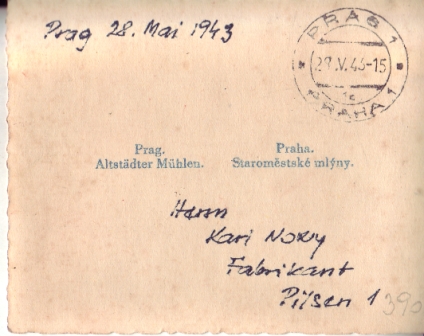 Prag 28. Mai 1943
PRAG 1
28.V.43-15
1c
PRAHA 1
Prag.
Altstädter Mühlen.
Praha.
Staroměstské mlýny.
Herrn
Karl Nowy
Fabrikant
Pilsen 1
390